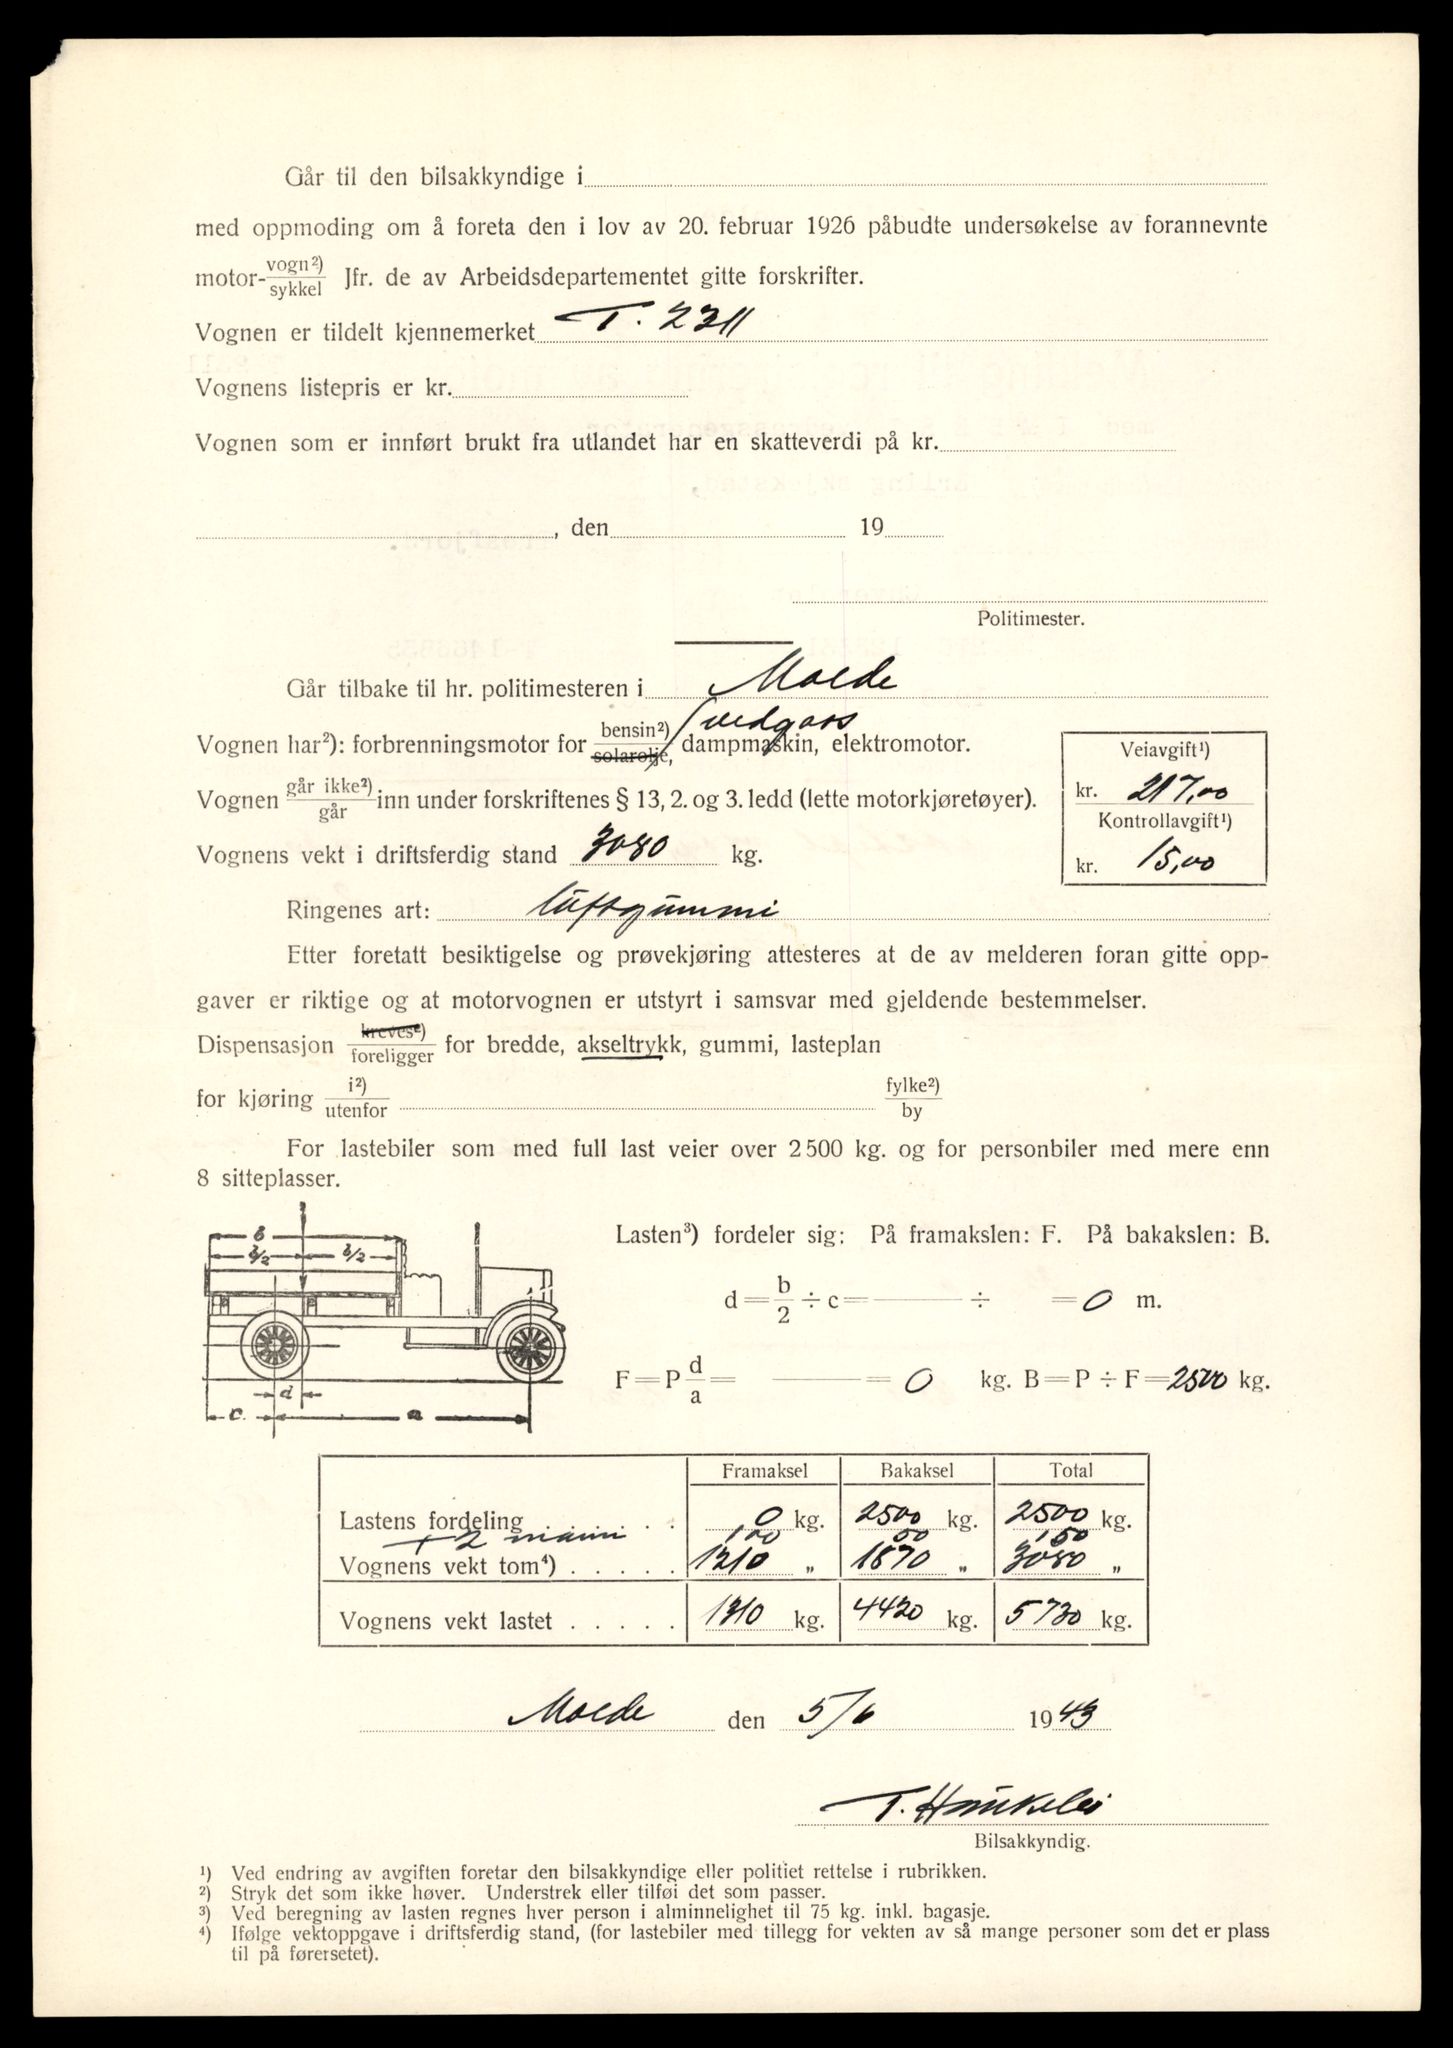 Går til den bilsakkyndige i
med oppmoding om å foreta den i lov av 20. februar 1926 påbudte undersøkelse av forannevnte
motor- vogn²)/sykkel Jfr. de av Arbeidsdepartementet gitte forskrifter.
Vognen er tildelt kjennemerket T. 2311
Vognens listepris er kr.
Vognen som er innført brukt fra utlandet har en skatteverdi på kr.
, den 19
Politimester.
Går tilbake til hr. politimesteren i Molde
Vognen har²): forbrenningsmotor for bensin²)/solarolje, vedgass dampmaskin, elektromotor.
Veiavgift¹)
kr. 217,00
Vognen går ikke²)/går inn under forskriftenes § 13, 2. og 3. ledd (lette motorkjøretøyer).
Kontrollavgift¹)
kr. 15,00
Vognens vekt i driftsferdig stand 3080 kg.
Ringenes art: luftgummi
Etter foretatt besiktigelse og prøvekjøring attesteres at de av melderen foran gitte opp-
gaver er riktige og at motorvognen er utstyrt i samsvar med gjeldende bestemmelser.
Dispensasjon kreves²)/foreligger for bredde, akseltrykk, gummi, lasteplan
for kjøring i²)/utenfor fylke²)/by
For lastebiler som med full last veier over 2500 kg. og for personbiler med mere enn
8 sitteplasser.
b
b/2 b/2
d
c. a
Lasten³) fordeler sig: På framakslen: F. På bakakslen: B.
d = b/2 ÷ c = ÷ = 0 m.
F = P d/a = 0 kg. B = P ÷ F = 2500 kg.
Framaksel Bakaksel Total
Lastens fordeling . . . . . 0 kg. 2500 kg. 2500 kg.
+ 2 mann 100 50 150
Vognens vekt tom⁴) . . . . . 1210 „ 1870 „ 3080 „
Vognens vekt lastet . . . . . 1310 kg. 4420 kg. 5730 kg.
Molde den 5/6 1943
T. Haukelid
Bilsakkyndig.
¹) Ved endring av avgiften foretar den bilsakkyndige eller politiet rettelse i rubrikken.
²) Stryk det som ikke høver. Understrek eller tilføi det som passer.
³) Ved beregning av lasten regnes hver person i alminnelighet til 75 kg. inkl. bagasje.
⁴) Ifølge vektoppgave i driftsferdig stand, (for lastebiler med tillegg for vekten av så mange personer som det er plass
til på førersetet).